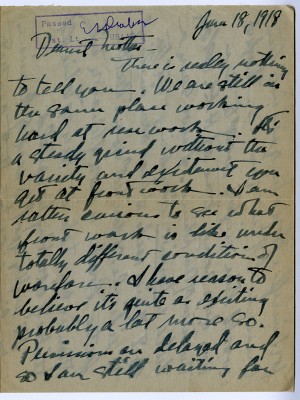 Passed
June 18, 1918
Dearest Mother -
There is really nothing
to tell you. We are still in
the same place working
hard at rear work. It's
a steady grind without the
variety and excitement you
get at front work. I am
rather curious to see what
front work is like under
totally different conditions of
warfare... I have reason to
believe its quite as exciting
probably a lot more so.
Permissions are delayed and
so I am still waiting for